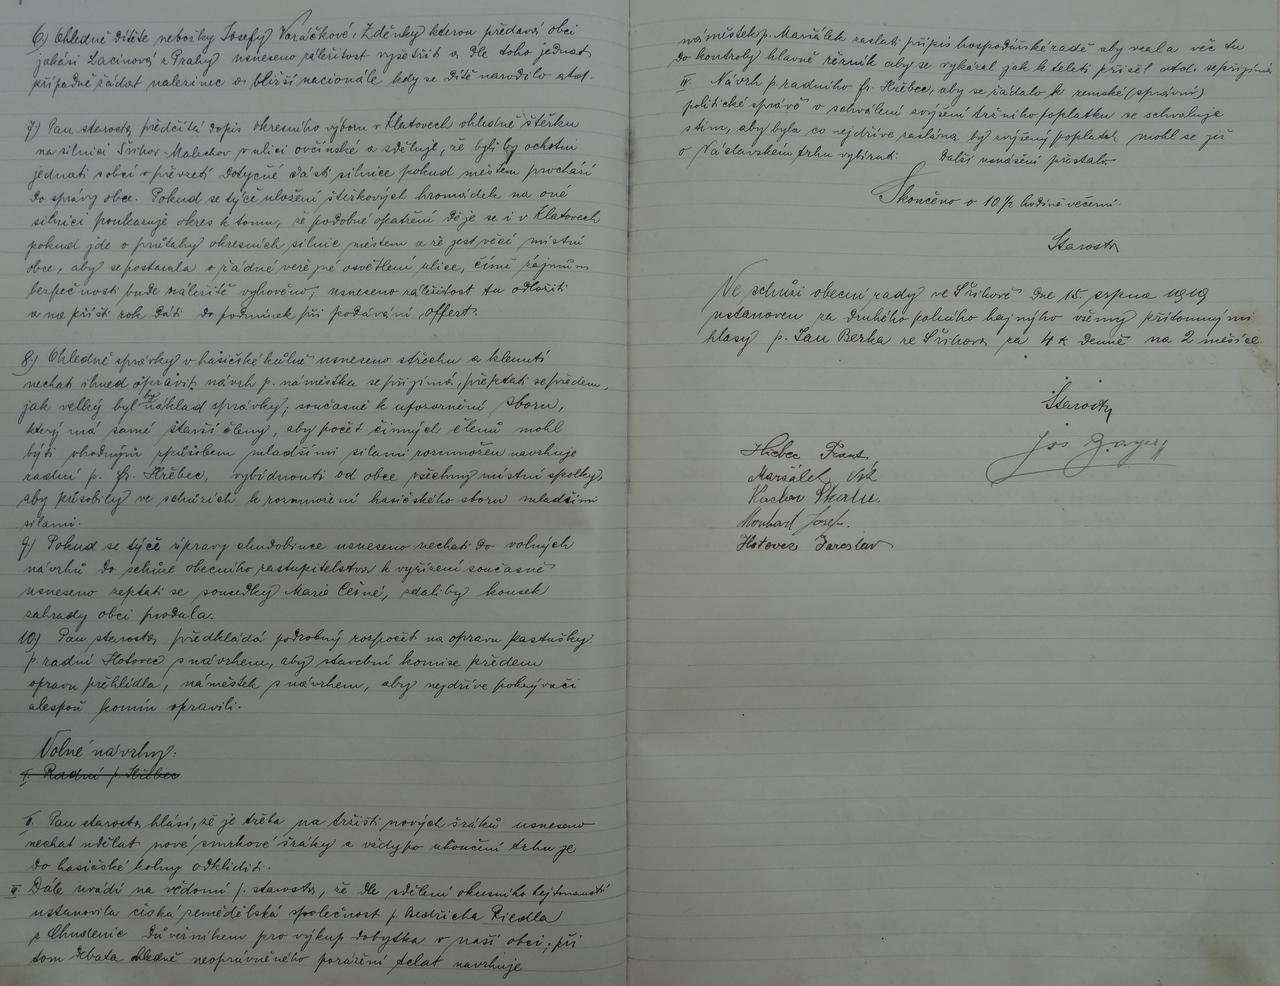 6) Ohledně dítěte nebožky Josefy Voráčkové, Zděnky kterou předává obci
jakási Lacinová z Prahy usneseno záležitost vyšetřiti a dle toho jednat
případně žádat nalezinec o bližší nacionále kdy se dítě narodilo atd.
7) Pan starosta předčítá dopis okresního výboru v Klatovech ohledně štěrku
na silnici Švihov-Malechov v ulici ovčínské a sděluje, že byli by ochotni
jednati s obcí o převzetí dotyčné části silnice pokud městem prochází
do správy obce. Pokud se týče uložení štěrkových hromádek na oné
silnici poukazuje okres k tomu, že podobné opatření děje se i v Klatovech
pokud jde o průtahy okresních silnic městem a že jest věcí místní
obce, aby se postarala o řádné veřejné osvětlení ulice, čímž zájmům
bezpečnosti bude náležitě vyhověno; usneseno záležitost tu odložiti
a na příští rok dáti do podmínek při podávání offert.
8) Ohledně správky v hasičské kůlně usneseno střechu a klenutí
nechat ihned opravit, návrh p. náměstka se přijímá, přeptati se předem,
jak velký byl by náklad správky; současně k upozornění sboru,
který má samé starší členy, aby počet činných členů mohl
býti vhodným způsobem mladšími silami rozmnožen navrhuje
radní p. Fr. Hřebec, vybídnouti od obce všechny místní spolky,
aby působily ve schůzích k rozmnožení hasičského sboru mladšími
silami.
9) Pokud se týče úpravy chudobince usneseno nechati do volných
návrhů do schůze obecního zastupitelstva k vyřízení současně
usneseno zeptati se sousedky Marie Češné, zdali by kousek
zahrady obci prodala.
10) Pan starosta předkládá podrobný rozpočet na opravu pastušky
p. radní Hotovec s návrhem, aby stavební komise předem
opravu přehlídla, náměstek s návrhem, aby nejdříve pokrývači
alespoň komín opravili.
Volné návrhy.
I. Radní p. Hřebec
II. Pan starosta hlásí, že je třeba na tržišti nových šráků usneseno
nechat udělat nové smrkové šráky a vždy po ukončení trhu je
do hasičské kolny odkliditi.
III. Dále uvádí na vědomí p. starosta, že dle sdělení okresního hejtmanství
ustanovila česká zemědělská společnost p. Bedřicha Riedla
z Chudenic důvěrníkem pro výkup dobytka v naší obci; při
tom debata ohledně neoprávněného porážení telat navrhuje
náměstek p. Maršálek zaslati přípis hospodářské radě aby vzala věc tu
do kontroly hlavně řezník aby se vykázal jak k teleti přišel atd. se přijímá
IV. Návrh p. radního Fr. Hřebec, aby se žádalo k zemské (správní)
politické správě o schválení zvýšení tržního poplatku se schvaluje
s tím, aby byla co nejdříve zaslána, by zvýšený poplatek mohl se již
o Václavském trhu vybírati. Další usnášení přestalo
Skončeno o 10 1/2 hodině večerní.
Starosta
Ve schůzi obecní rady ve Švihově dne 15. srpna 1919
ustanoven za druhého polního hajného všemi přítomnými
hlasy p. Jan Berka ze Švihova za 4 K denně na 2 měsíce.
Starosta
Jos.
Hřebec Frant.
Maršálek Vok
Václav
Josef.
Hotovec Jaroslav